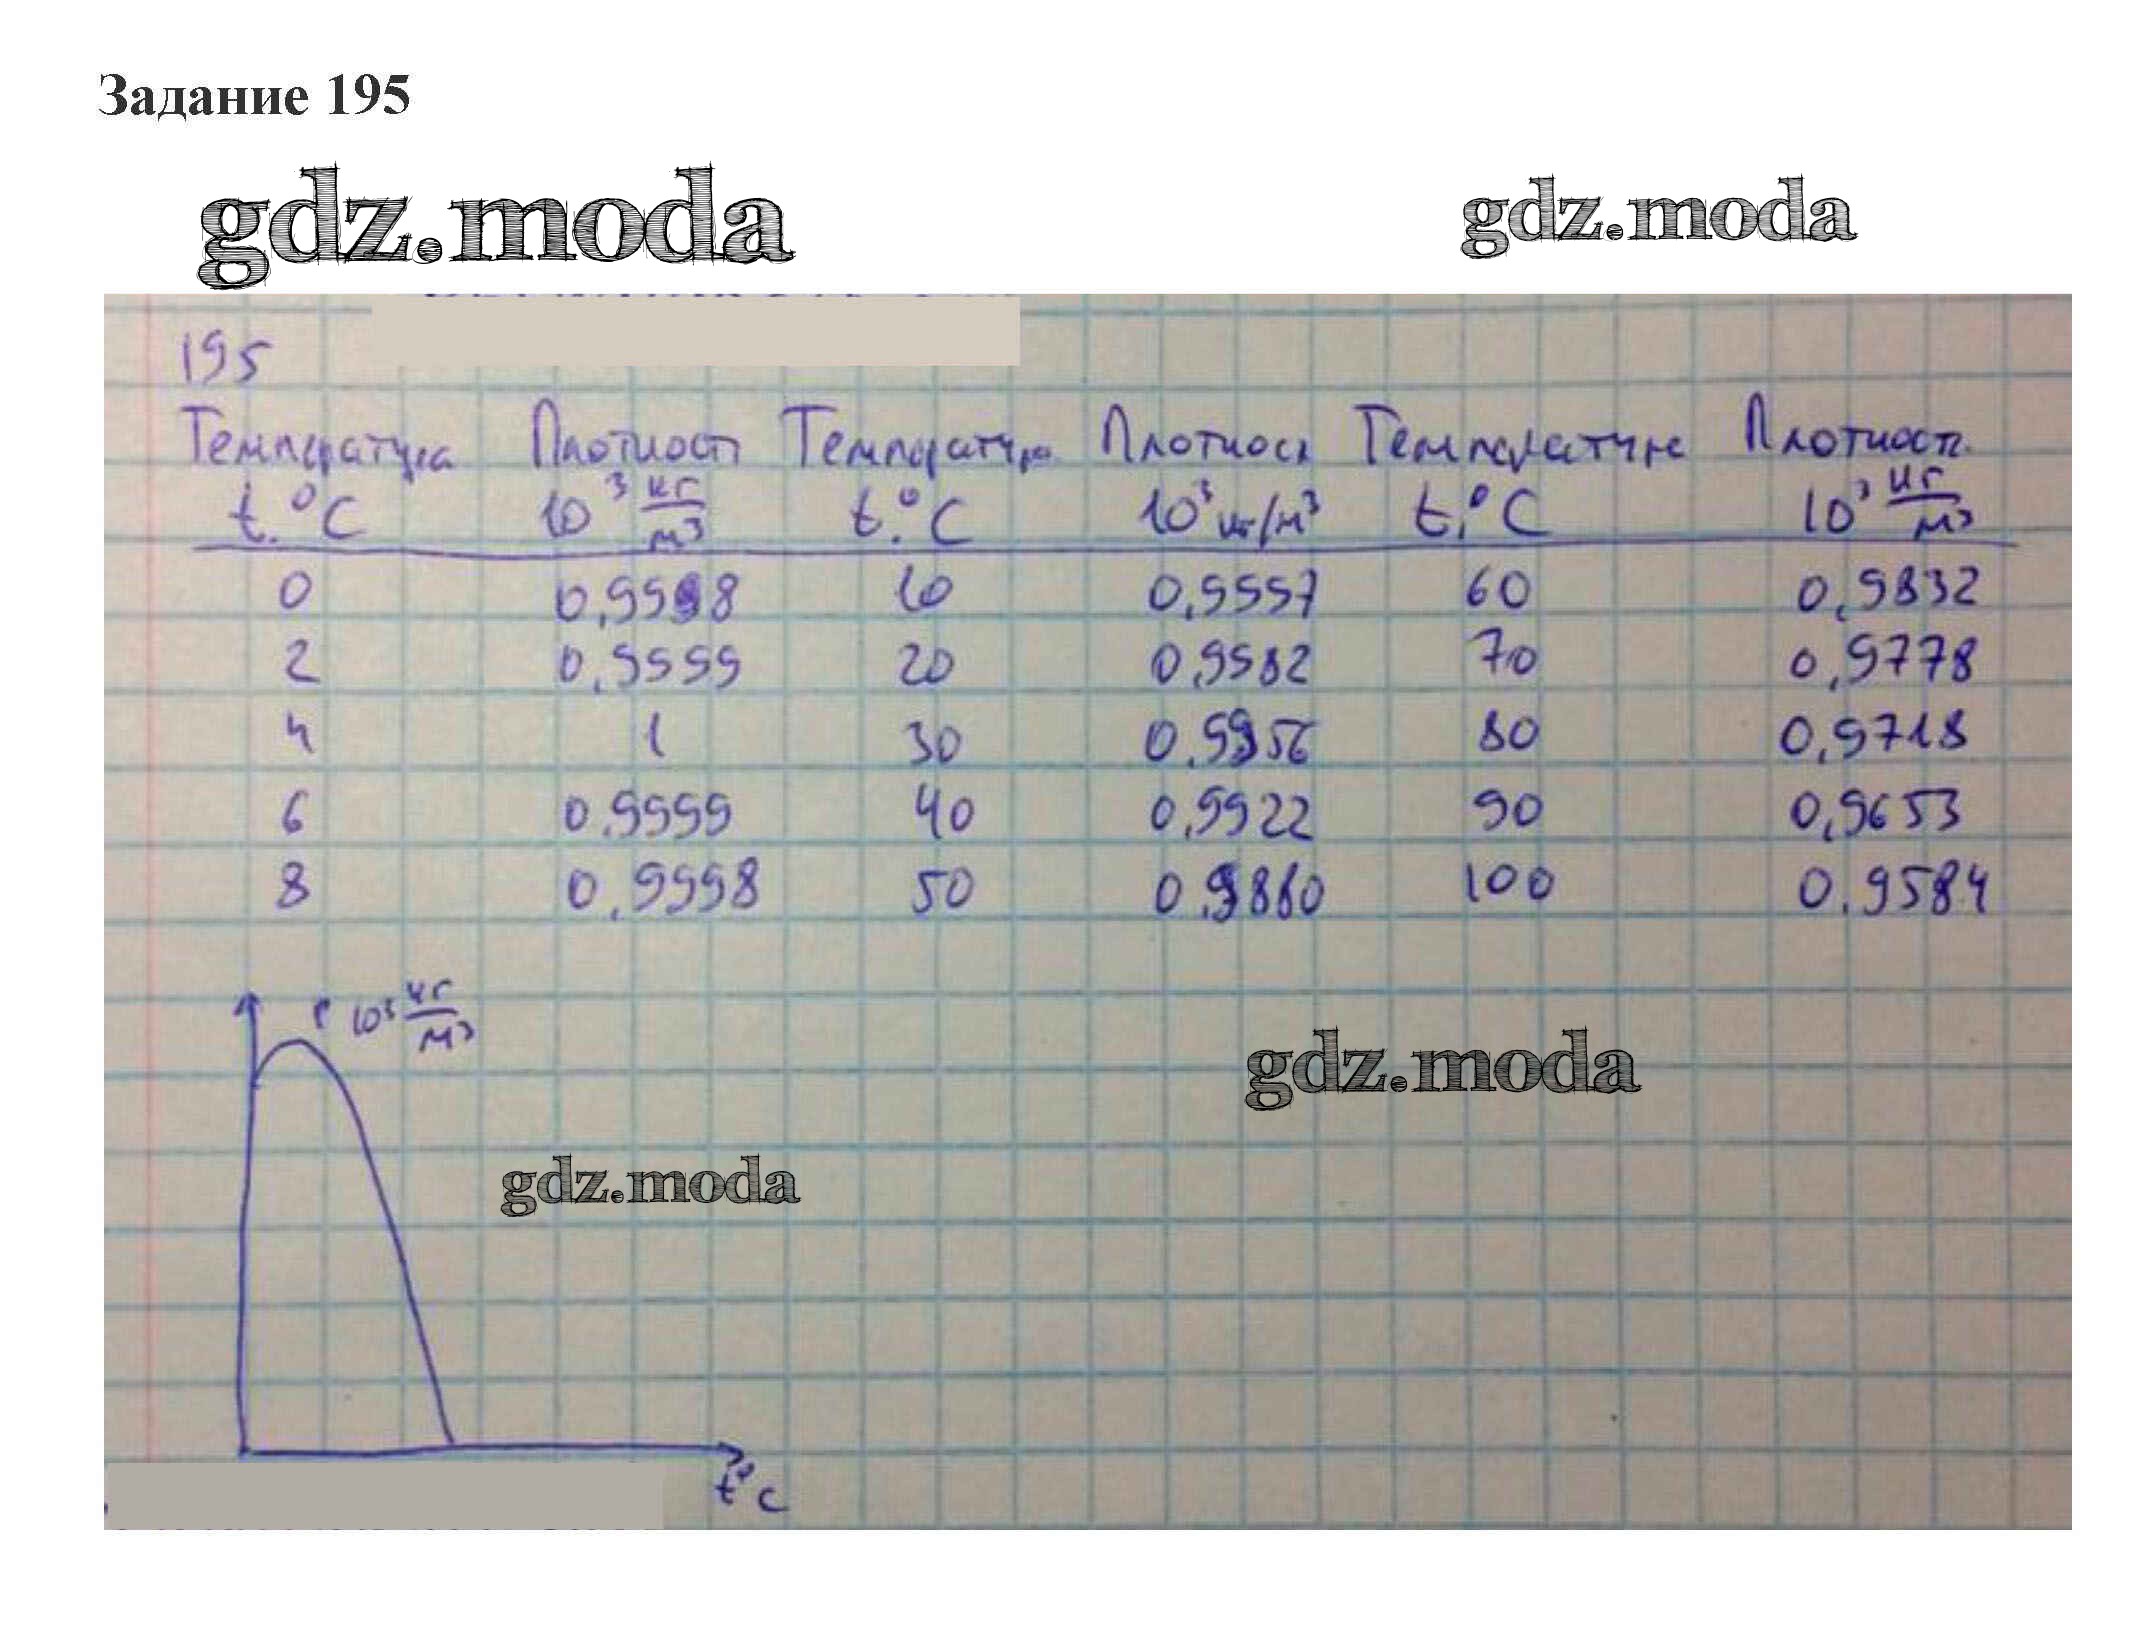 Задание 195
gdz.moda gdz.moda
195
Температура Плотност Температура Плотност Температуре Плотност
t.°C 10³ кг/м³ t.°C 10³ кг/м³ t.°C 10³ кг/м³
0 0,9998 10 0,9997 60 0,9832
2 0,9999 20 0,9982 70 0,9778
4 1 30 0,9956 80 0,9718
6 0,9999 40 0,9922 90 0,9653
8 0,9998 50 0,9880 100 0,9584
ρ 10³ кг/м³
gdz.moda
gdz.moda
t°C